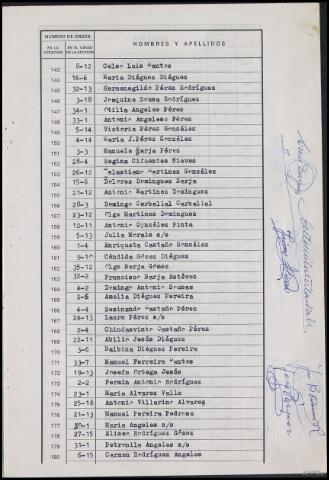 NUMERO DE ORDEN
EN LA VOTACION
EN EL CENSO DE LA SECCION
NOMBRES Y APELLIDOS
143 8-12 Celso Luis Santos
144 16-6 Maria Diéguez Diéguez
145 32-13 Hermenegildo Pérez Rodríguez
146 3-18 Joaquina Sousa Rodríguez
147 34-1 Otilia Angeles Pérez
148 33-1 Antonio Angeles Pérez
149 5-14 Victoria Pérez González
150 4-14 Maria J.Pérez González
151 3-3 Manuela Borja Pérez
152 28-4 Regina Cifuentes Nieves
153 26-12 Martinez González
154 15-6 Dolores Domingues Borja
155 21-12 Antonio Martinez Domínguez
156 28-3 Domingo Carballal Carballal
157 23-12 Olga Martinez Domingues
158 12-11 Antonio González Pinta
159 5-13 Julia Morais s/s
160 1-4 Enriqueta Castaño González
161 9-10 Cándida Gómez Diéguez
162 35-12 Olgo Borja Gómez
163 32-2 Francisco Barja Estévez
164 4-2 Domingo Antonio Sousas
165 2-6 Amelia Diéguez Pereira
166 4-4 Sesinando Castaño Pérez
167 24-13 Laura Pérez s/s
168 2-4 Chindasvinto Castaño Pérez
169 22-11 Abilio Jesús Diéguez
170 3-6 Balbina Diéguez Pereira
171 33-7 Manuel Ferreira Santos
172 19-13 Josefa Ortega Jesús
173 2-2 Fermin Antonio Rodríguez
174 23-1 Maria Alvarez Valle
175 25-18 Antonio Villarino Alvarez
176 21-13 Manuel Pereira Pedrosa
177 Maria Angeles s/s
178 27-15 Eliseo Rodríguez Gómez
179 31-1 Petronila Angeles s/s
180 6-15 Carmen Rodríguez Angeles